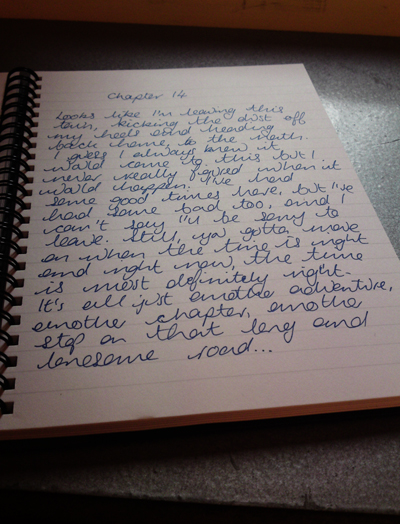 Chapter 14
Looks like I'm leaving this
town, kicking the dust off
my heels and heading
back home, to the North.
I guess I always knew it
would come to this but I
never really figured when it
would happen. I've had
some good times here, but I've
had some bad too, and I
can't say I'll be sorry to
leave. Still, ya gotta move
on when the time is right
and right now, the time
is most definitely right.
It's all just another adventure,
another chapter, another
step on that long and
lonesome road...